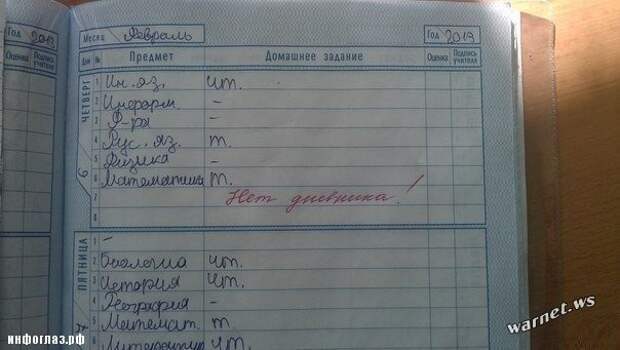 Год 2013 Месяц Февраль Год 2013
Оценка Подпись учителя Дни № Предмет Домашнее задание Оценка Подпись учителя
ЧЕТВЕРГ
1 Ин. яз. чт.
2 Информ. -
3 Ф-ра -
4 Рус. яз. т.
5 Физика -
6 Математика т.
7 Нет дневника!
8
ПЯТНИЦА
1 -
2 Биология чт.
3 История чт.
4 География -
5 Математ. т.
6 Литература чт.
инфоглаз.рф
warnet.ws